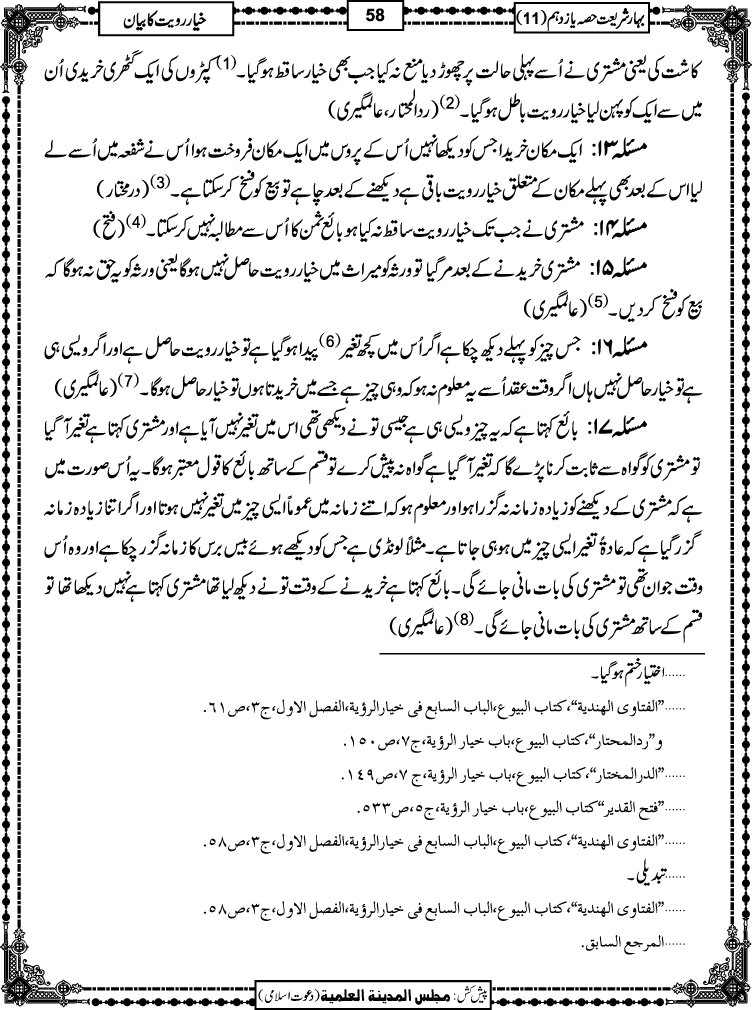 بہار شریعت حصہ یازدہم (11)
58
خیار رویت کا بیان
کاشت کی یعنی مشتری نے اُسے پہلی حالت پر چھوڑ دیا منع نہ کیا جب بھی خیار ساقط ہوگیا۔(1) کپڑوں کی ایک گٹھری خریدی اُن
میں سے ایک کو پہن لیا خیار رویت باطل ہوگیا۔(2) (ردالمحتار، عالمگیری)
مسئلہ ۱۳: ایک مکان خریدا جس کو دیکھا نہیں اُس کے پروس میں ایک مکان فروخت ہوا اُس نے شفعہ میں اُسے لے
لیا اس کے بعد بھی پہلے مکان کے متعلق خیار رویت باقی ہے دیکھنے کے بعد چاہے تو بیع کو فسخ کرسکتا ہے۔(3) (درمختار)
مسئلہ ۱۴: مشتری نے جب تک خیار رویت ساقط نہ کیا ہو بائع ثمن کا اُس سے مطالبہ نہیں کرسکتا۔(4) (فتح)
مسئلہ ۱۵: مشتری خریدنے کے بعد مرگیا تو ورثہ کو میراث میں خیار رویت حاصل نہیں ہوگا یعنی ورثہ کو یہ حق نہ ہوگا کہ
بیع کو فسخ کردیں۔(5) (عالمگیری)
مسئلہ ۱۶: جس چیز کو پہلے دیکھ چکا ہے اگر اُس میں کچھ تغیر(6) پیدا ہوگیا ہے تو خیار رویت حاصل ہے اور اگر ویسی ہی
ہے تو خیار حاصل نہیں ہاں اگر وقت عقد اُسے یہ معلوم نہ ہو کہ وہی چیز ہے جسے میں خریدتا ہوں تو خیار حاصل ہوگا۔(7) (عالمگیری)
مسئلہ ۱۷: بائع کہتا ہے کہ یہ چیز ویسی ہی ہے جیسی تو نے دیکھی تھی اس میں تغیر نہیں آیا ہے اور مشتری کہتا ہے تغیر آگیا
تو مشتری کو گواہ سے ثابت کرنا پڑے گا کہ تغیر آگیا ہے گواہ نہ پیش کرے تو قسم کے ساتھ بائع کا قول معتبر ہوگا۔ یہ اُس صورت میں
ہے کہ مشتری کے دیکھنے کو زیادہ زمانہ نہ گزرا ہو اور معلوم ہو کہ اتنے زمانہ میں عموماً ایسی چیز میں تغیر نہیں ہوتا اور اگر اتنا زیادہ زمانہ
گزر گیا ہے کہ عادۃً تغیر ایسی چیز میں ہو ہی جاتا ہے۔ مثلاً لونڈی ہے جس کو دیکھے ہوئے بیس برس کا زمانہ گزر چکا ہے اور وہ اُس
وقت جوان تھی تو مشتری کی بات مانی جائے گی۔ بائع کہتا ہے خریدنے کے وقت تو نے دیکھ لیا تھا مشتری کہتا ہے نہیں دیکھا تھا تو
قسم کے ساتھ مشتری کی بات مانی جائے گی۔(8) (عالمگیری)
......اختیار ختم ہوگیا۔
......"الفتاوی الهندية"، کتاب البيوع،الباب السابع فی خيارالرؤية،الفصل الاول،ج۳،ص۶۱.
و"ردالمحتار"، کتاب البيوع،باب خيار الرؤية،ج۷،ص۱۵۰.
......"الدرالمختار"، کتاب البيوع،باب خيار الرؤية،ج۷،ص۱۴۹.
......"فتح القدير" کتاب البيوع،باب خيار الرؤية،ج۵،ص۵۳۳.
......"الفتاوی الهندية"، کتاب البيوع،الباب السابع فی خيارالرؤية،الفصل الاول،ج۳،ص۵۸.
......تبدیلی۔
......"الفتاوی الهندية"، کتاب البيوع،الباب السابع فی خيارالرؤية،الفصل الاول،ج۳،ص۵۸.
......المرجع السابق.
پیش کش: مجلس المدینة العلمیة (دعوت اسلامی)